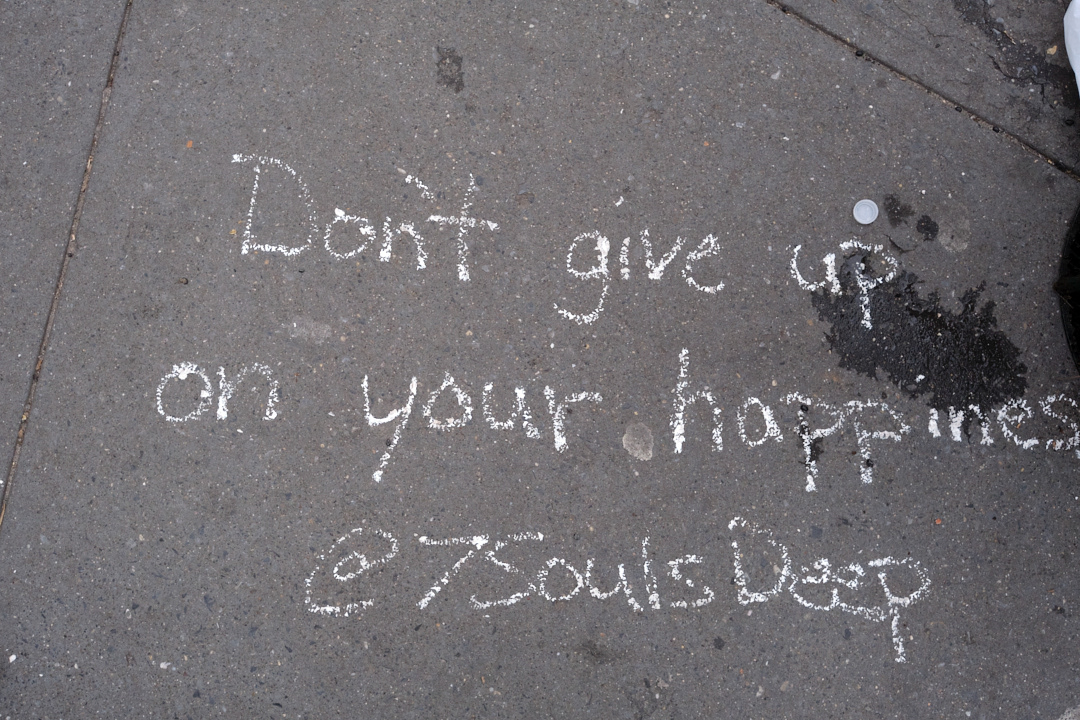 Don't give up
on your happines
@7SoulsDeep